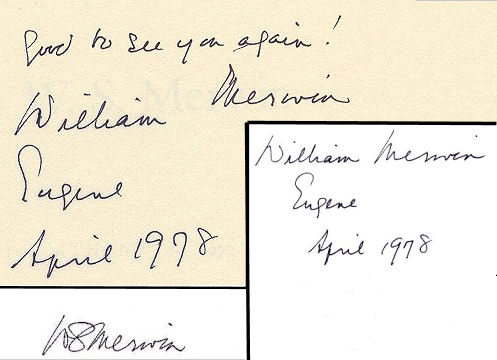 Good to see you again!
William Merwin
Eugene
April 1978
William Merwin
Eugene
April 1978
WSMerwin